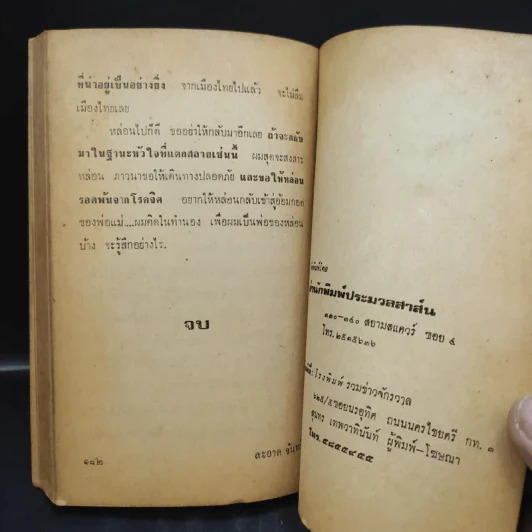 ที่น่าอยู่เป็นอย่างยิ่ง จากเมืองไทยไปแล้ว จะไม่ลืม
เมืองไทยเลย
หล่อนไปก็ดี ขออย่าให้กลับมาอีกเลย ถ้าจะกลับ
มาในฐานะหัวใจที่แตกสลายเช่นนี้ ผมสุดจะสงสาร
หล่อน ภาวนาขอให้เดินทางปลอดภัย และขอให้หล่อน
รอดพ้นจากโรคจิต อยากให้หล่อนกลับเข้าสู่อ้อมกอด
ของพ่อแม่....ผมคิดในทำนอง เพื่อผมเป็นพ่อของหล่อน
บ้าง จะรู้สึกอย่างไร.
จบ
๑๘๒
สะอาด จันทร์
สำนักพิมพ์ประมวลสาส์น
๒๓๐-๒๔๐ สยามสแควร์ ซอย ๕
โทร. ๒๕๑๕๖๓๖
โรงพิมพ์ รวมข่าวจักรวาล
๖๒๕/๕ ซอยนรอุทิศ ถนนนครไชยศรี กท. ๓
สุนทร เทพวาทินันท์ ผู้พิมพ์-โฆษณา
โทร. ๕๘๕๕๔๕๕